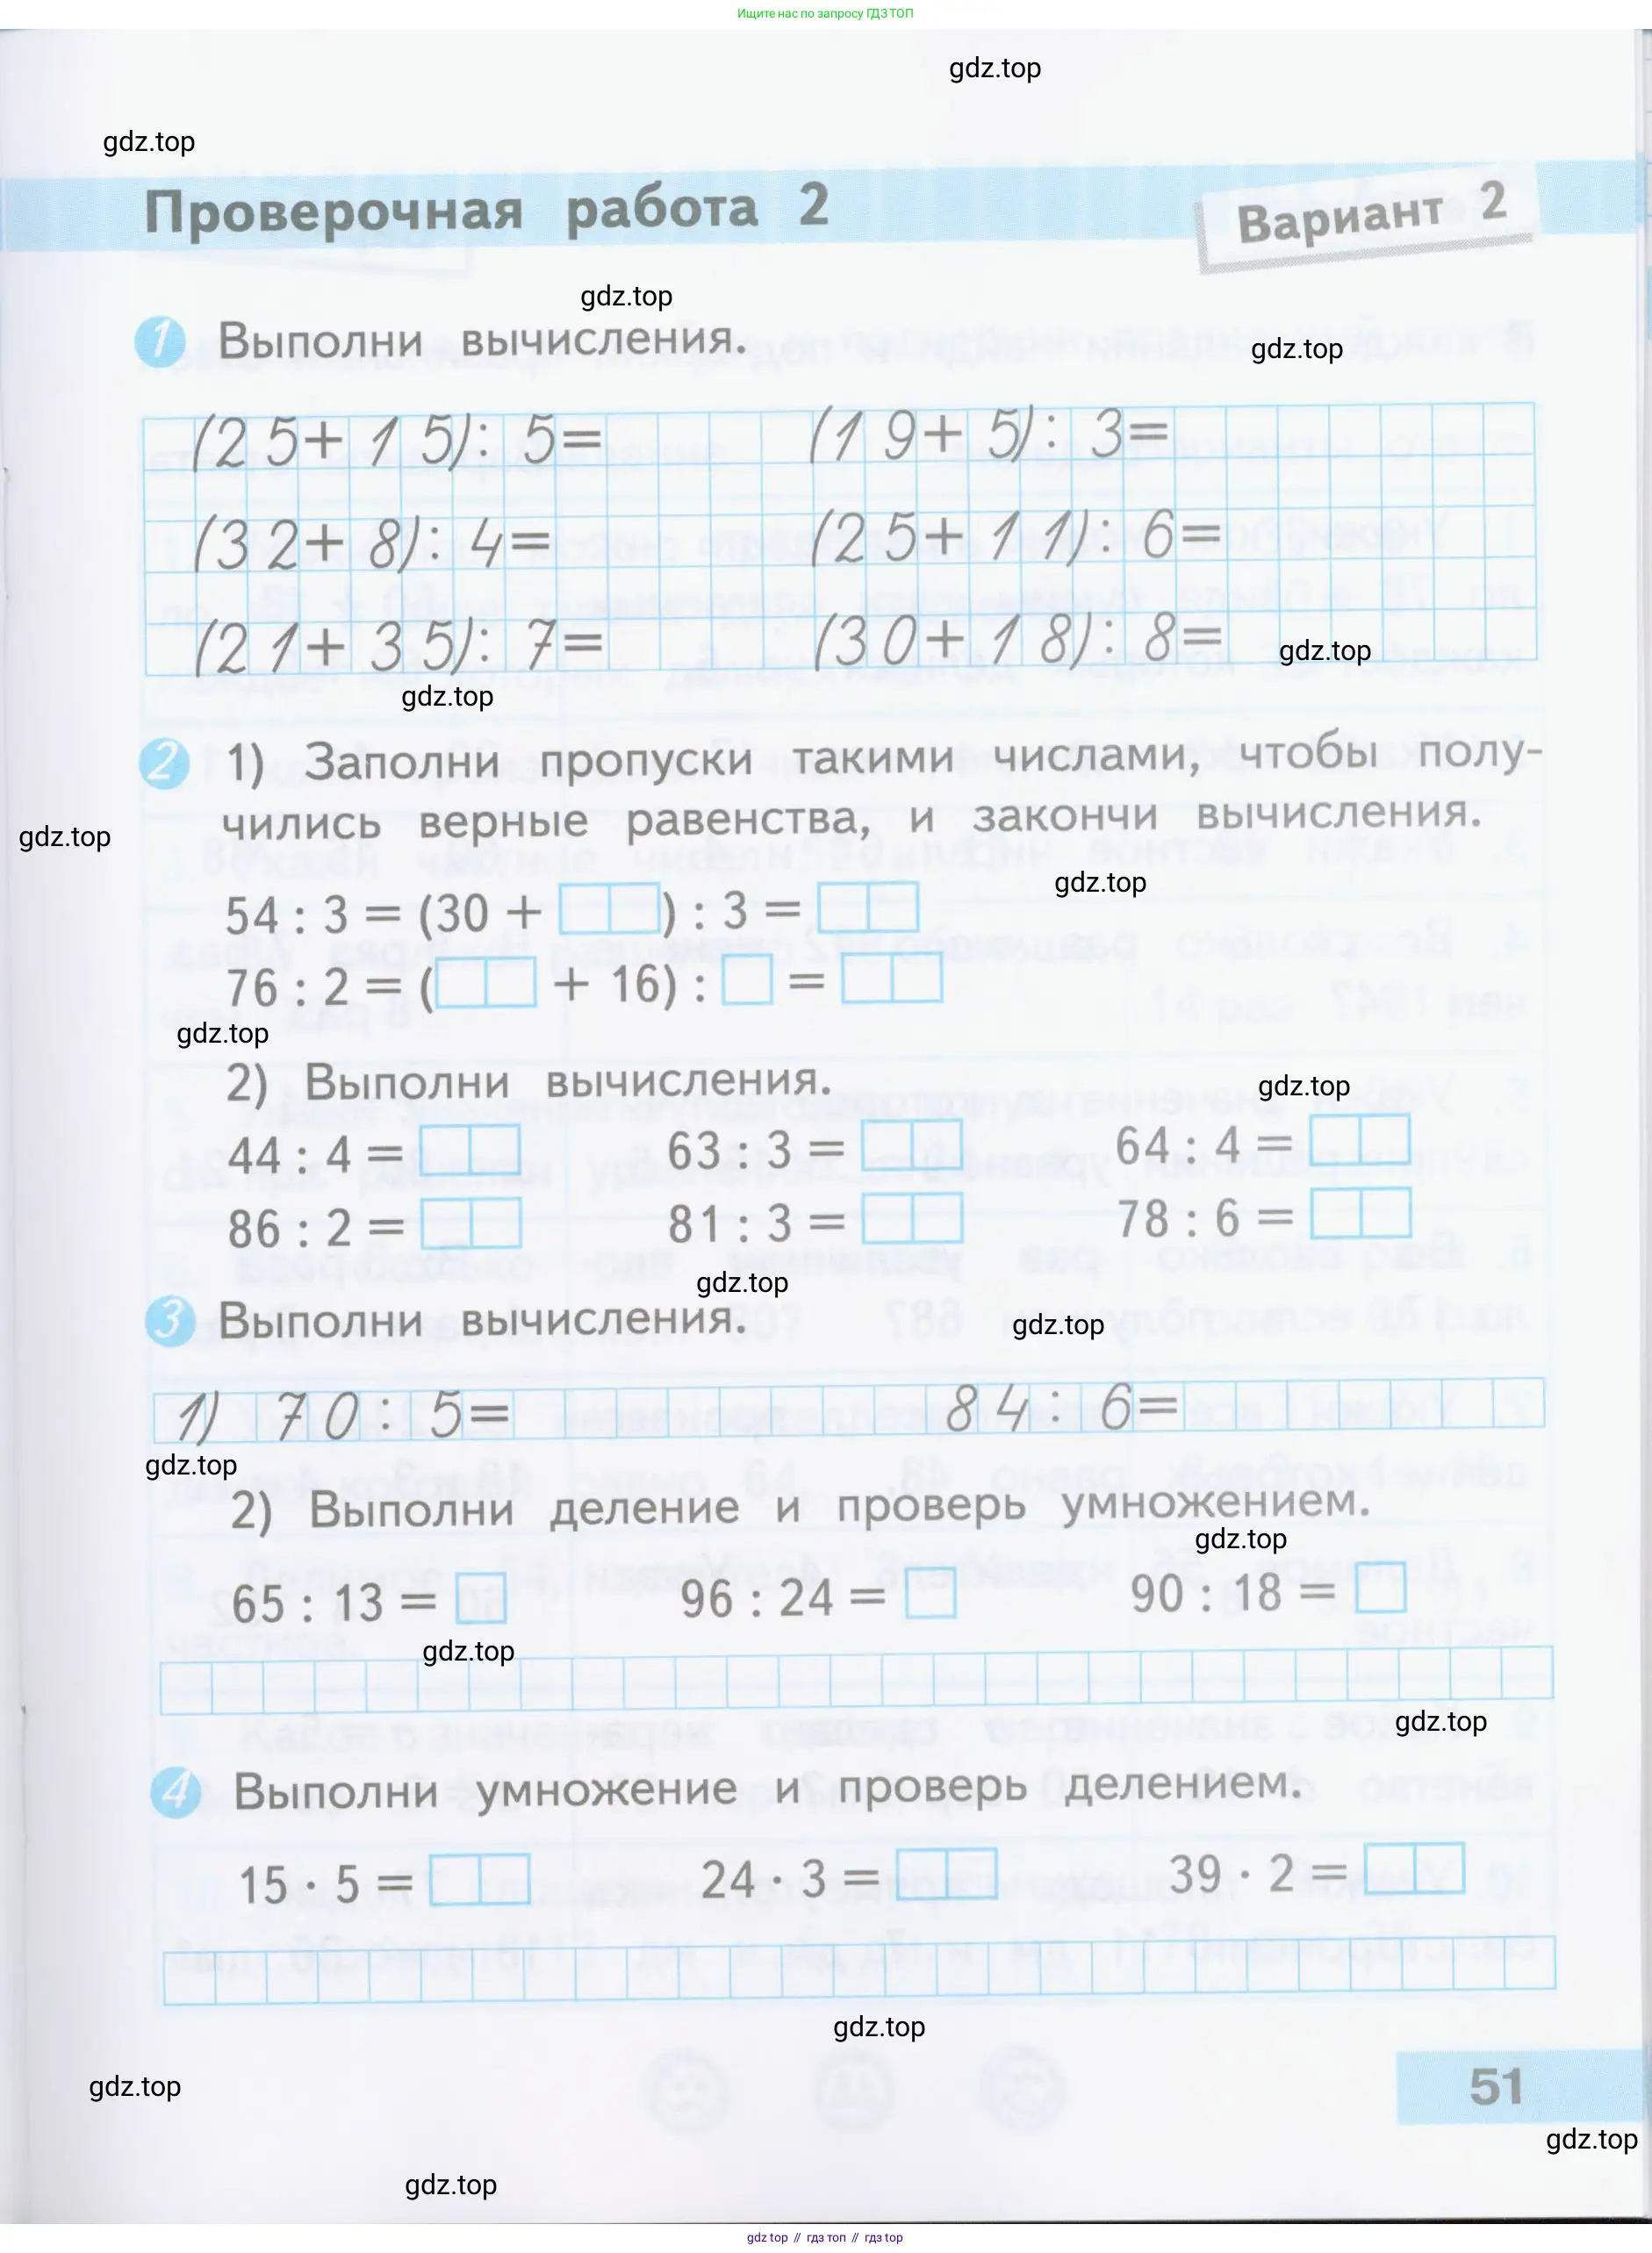 Ищите нас по запросу ГДЗ ТОП
gdz.top
gdz.top
Проверочная работа 2
Вариант 2
gdz.top
1 Выполни вычисления.
gdz.top
(25+15):5= (19+5):3=
(32+8):4= (25+11):6=
(21+35):7= (30+18):8=
gdz.top
gdz.top
2 1) Заполни пропуски такими числами, чтобы полу-
чились верные равенства, и закончи вычисления.
gdz.top
gdz.top
54 : 3 = (30 + ) : 3 =
76 : 2 = ( + 16) : =
gdz.top
2) Выполни вычисления.
gdz.top
44 : 4 = 63 : 3 = 64 : 4 =
86 : 2 = 81 : 3 = 78 : 6 =
gdz.top
3 Выполни вычисления.
gdz.top
1) 70:5= 84:6=
gdz.top
2) Выполни деление и проверь умножением.
gdz.top
65 : 13 = 96 : 24 = 90 : 18 =
gdz.top
gdz.top
4 Выполни умножение и проверь делением.
15 · 5 = 24 · 3 = 39 · 2 =
gdz.top
gdz.top
51
gdz.top
gdz.top
gdz.top // гдз топ // гдз.top